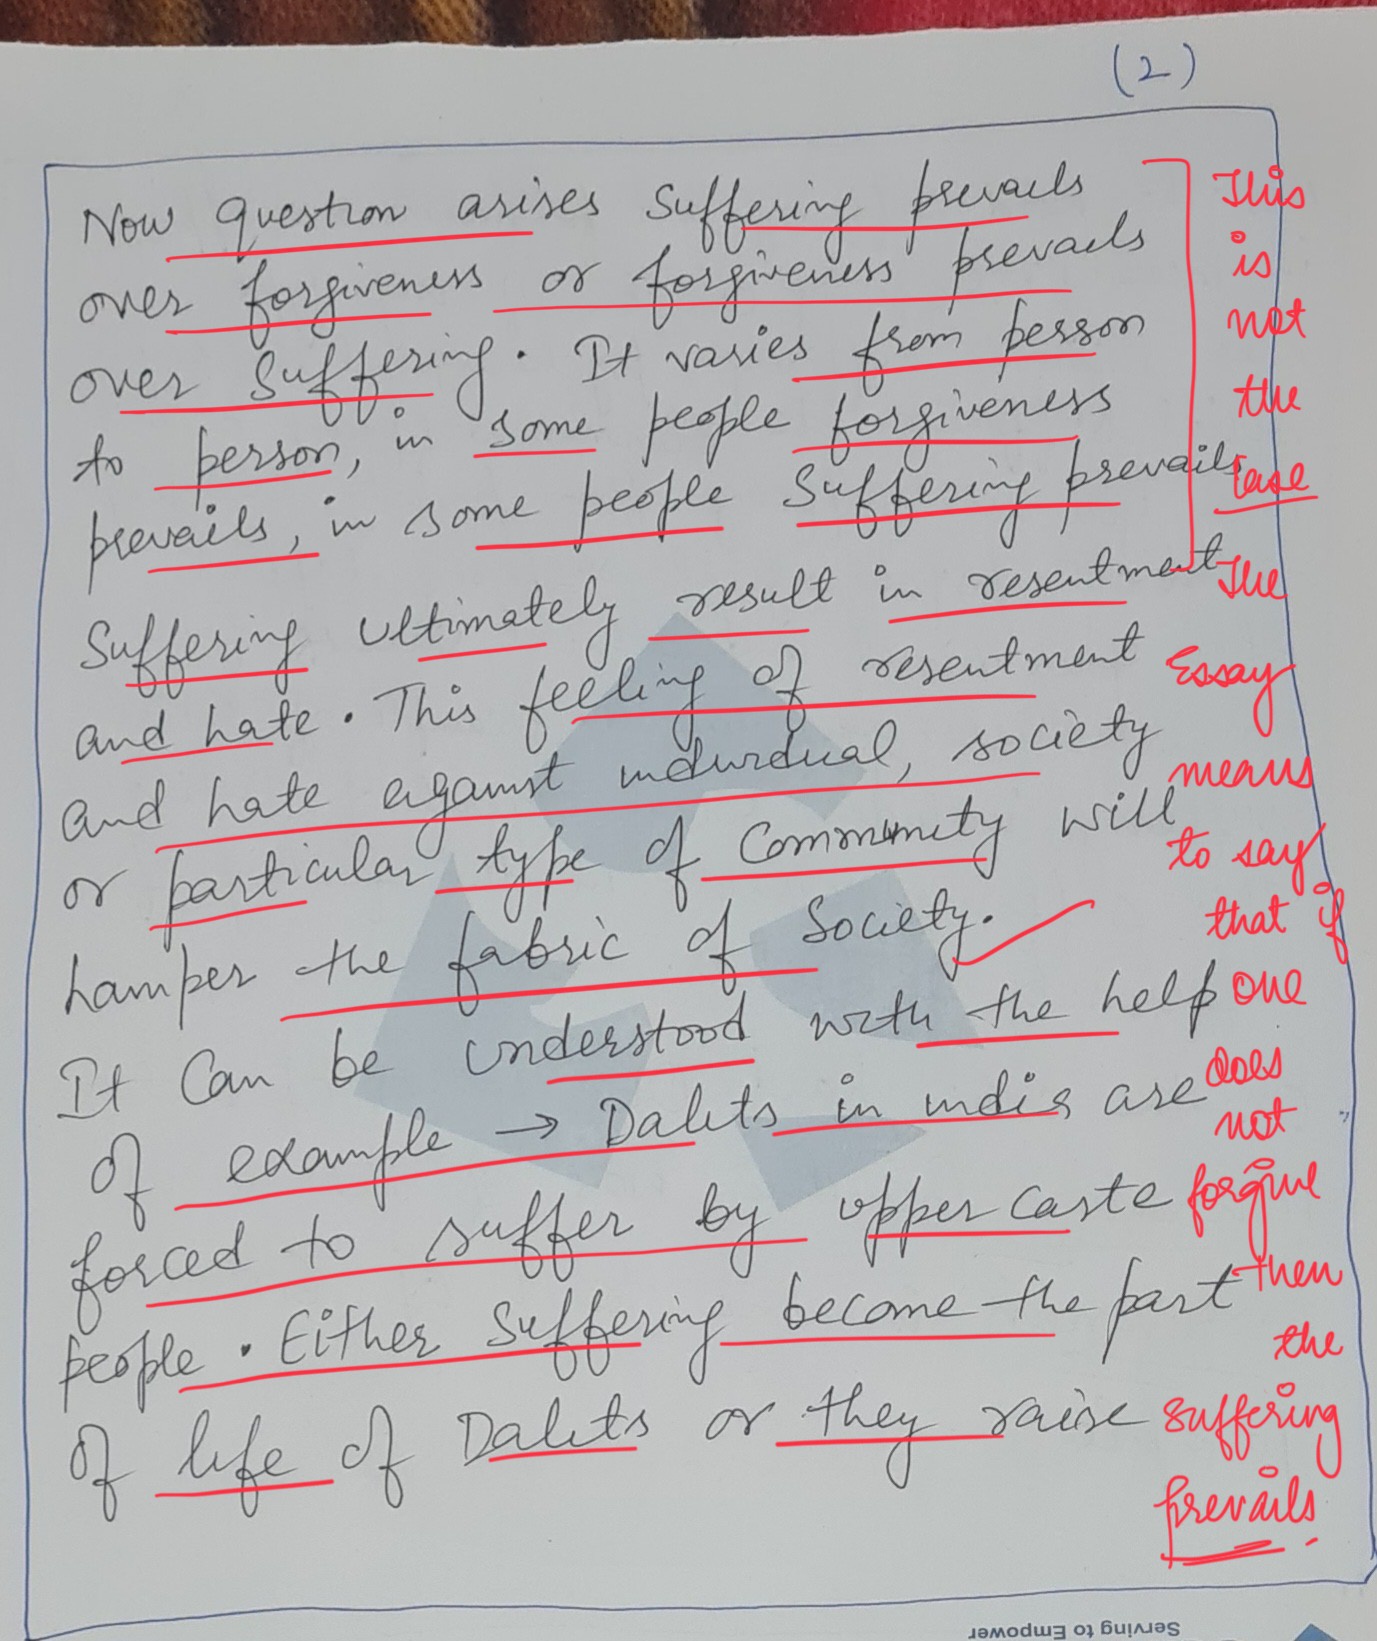 (2)
Now question arises suffering prevails
over forgiveness or forgiveness prevails
over suffering. It varies from person
to person, in some people forgiveness
prevails, in some people suffering prevails
Suffering ultimately result in resentment
and hate. This feeling of resentment
and hate against individual, society
or particular type of Community will
hamper the fabric of Society.
It can be understood with the help
of example → Dalits in india are
forced to suffer by upper caste
people. Either suffering become the part
of life of Dalits or they raise
This
is
not
the
case
The
Essay
means
to say
that if
one
does
not
forgive
then
the
suffering
prevails.
Serving to Empower